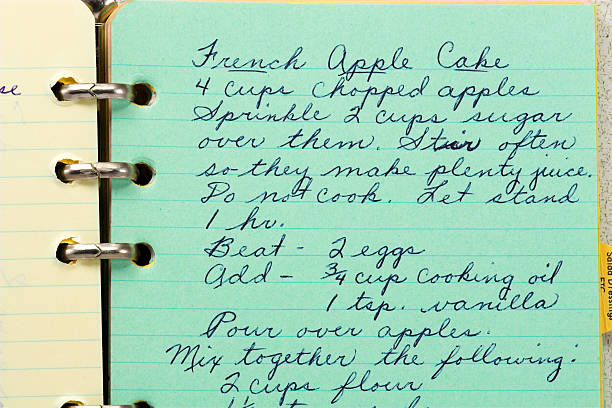 se
French Apple Cake
4 cups chopped apples
Sprinkle 2 cups sugar
over them. Stir often
so they make plenty juice.
Do not cook. Let stand
1 hr.
Beat - 2 eggs
Add - 3/4 cup cooking oil
1 tsp. vanilla
Pour over apples.
Mix together the following:
2 cups flour
Salad Dressing
Etc